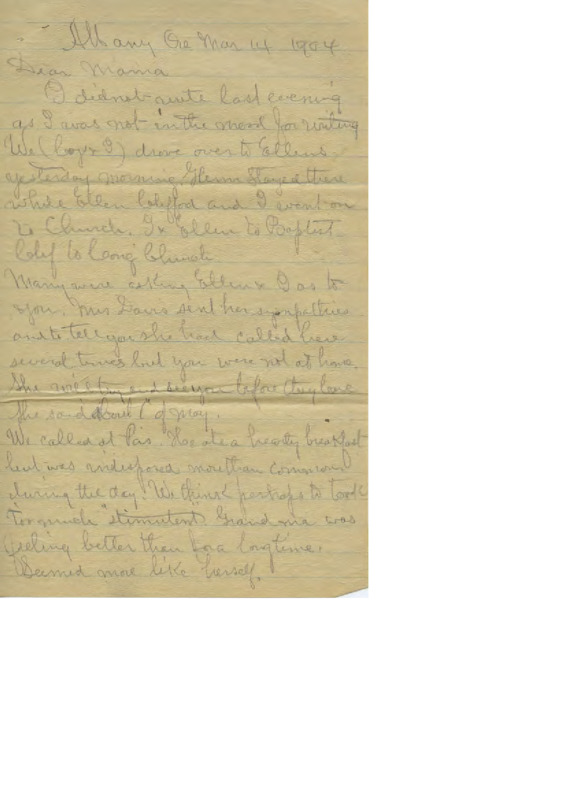 Albany Ore Mar 14 1904
Dear Mama
I did not write last evening
as I was not in the mood for writing
We (boys & I) drove over to Ellens
yesterday morning, Glenn stayed there
while Ellen Cliff and I went on
to Church. I & Ellen to Baptist
Clif to Cong Church
Many were asking Ellen & I as to
you. Mrs Davis sent her sympathies
and to tell you she had called here
several times but you were not at home.
She will try and see you before they leave
She said about 1 of May.
We called at Pa's. He ate a hearty breakfast
but was indisposed more than common
during the day. We think perhaps to took
too much "stimulent" Grandma was
feeling better than for a long time.
Seemed more like herself.